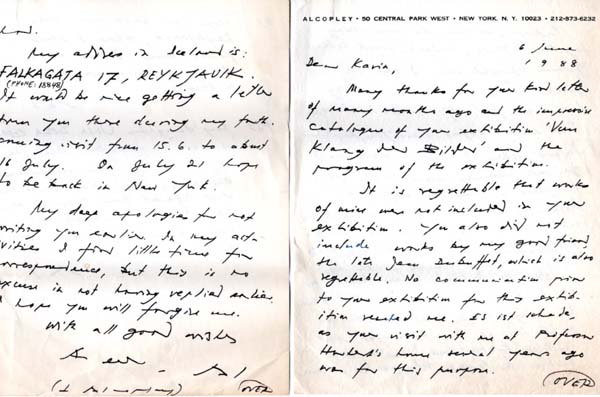 My address in Iceland is:
FALKAGATA 17, REYKJAVIK.
(PHONE: 18848)
It would be nice getting a letter
from you there during my forth-
coming visit from 15.6. to about
16 July. On July 21 hope
to be back in New York.
My deep apologies for not
writing you earlier. In my acti-
vities I find little time for
correspondence, but this is no
excuse in not having replied earlier.
I hope you will forgive me.
With all good wishes
(OVER)
ALCOPLEY • 50 CENTRAL PARK WEST • NEW YORK, N. Y. 10023 • 212-873-6232
6 June
1988
Dear Karin,
Many thanks for your kind letter
of many months ago and the impressive
catalogue of your exhibition 'Vom
Klang der Bilder' and the
program of the exhibition.
It is regrettable that works
of mine were not included in your
exhibition. You also did not
include works by my good friend,
the late Jean Dubuffet, which is also
regrettable. No communication prior
to your exhibition for this exhib-
ition reached me. Es ist schade,
as your visit with me at Professor
house several years ago
was for this purpose.
(OVER)